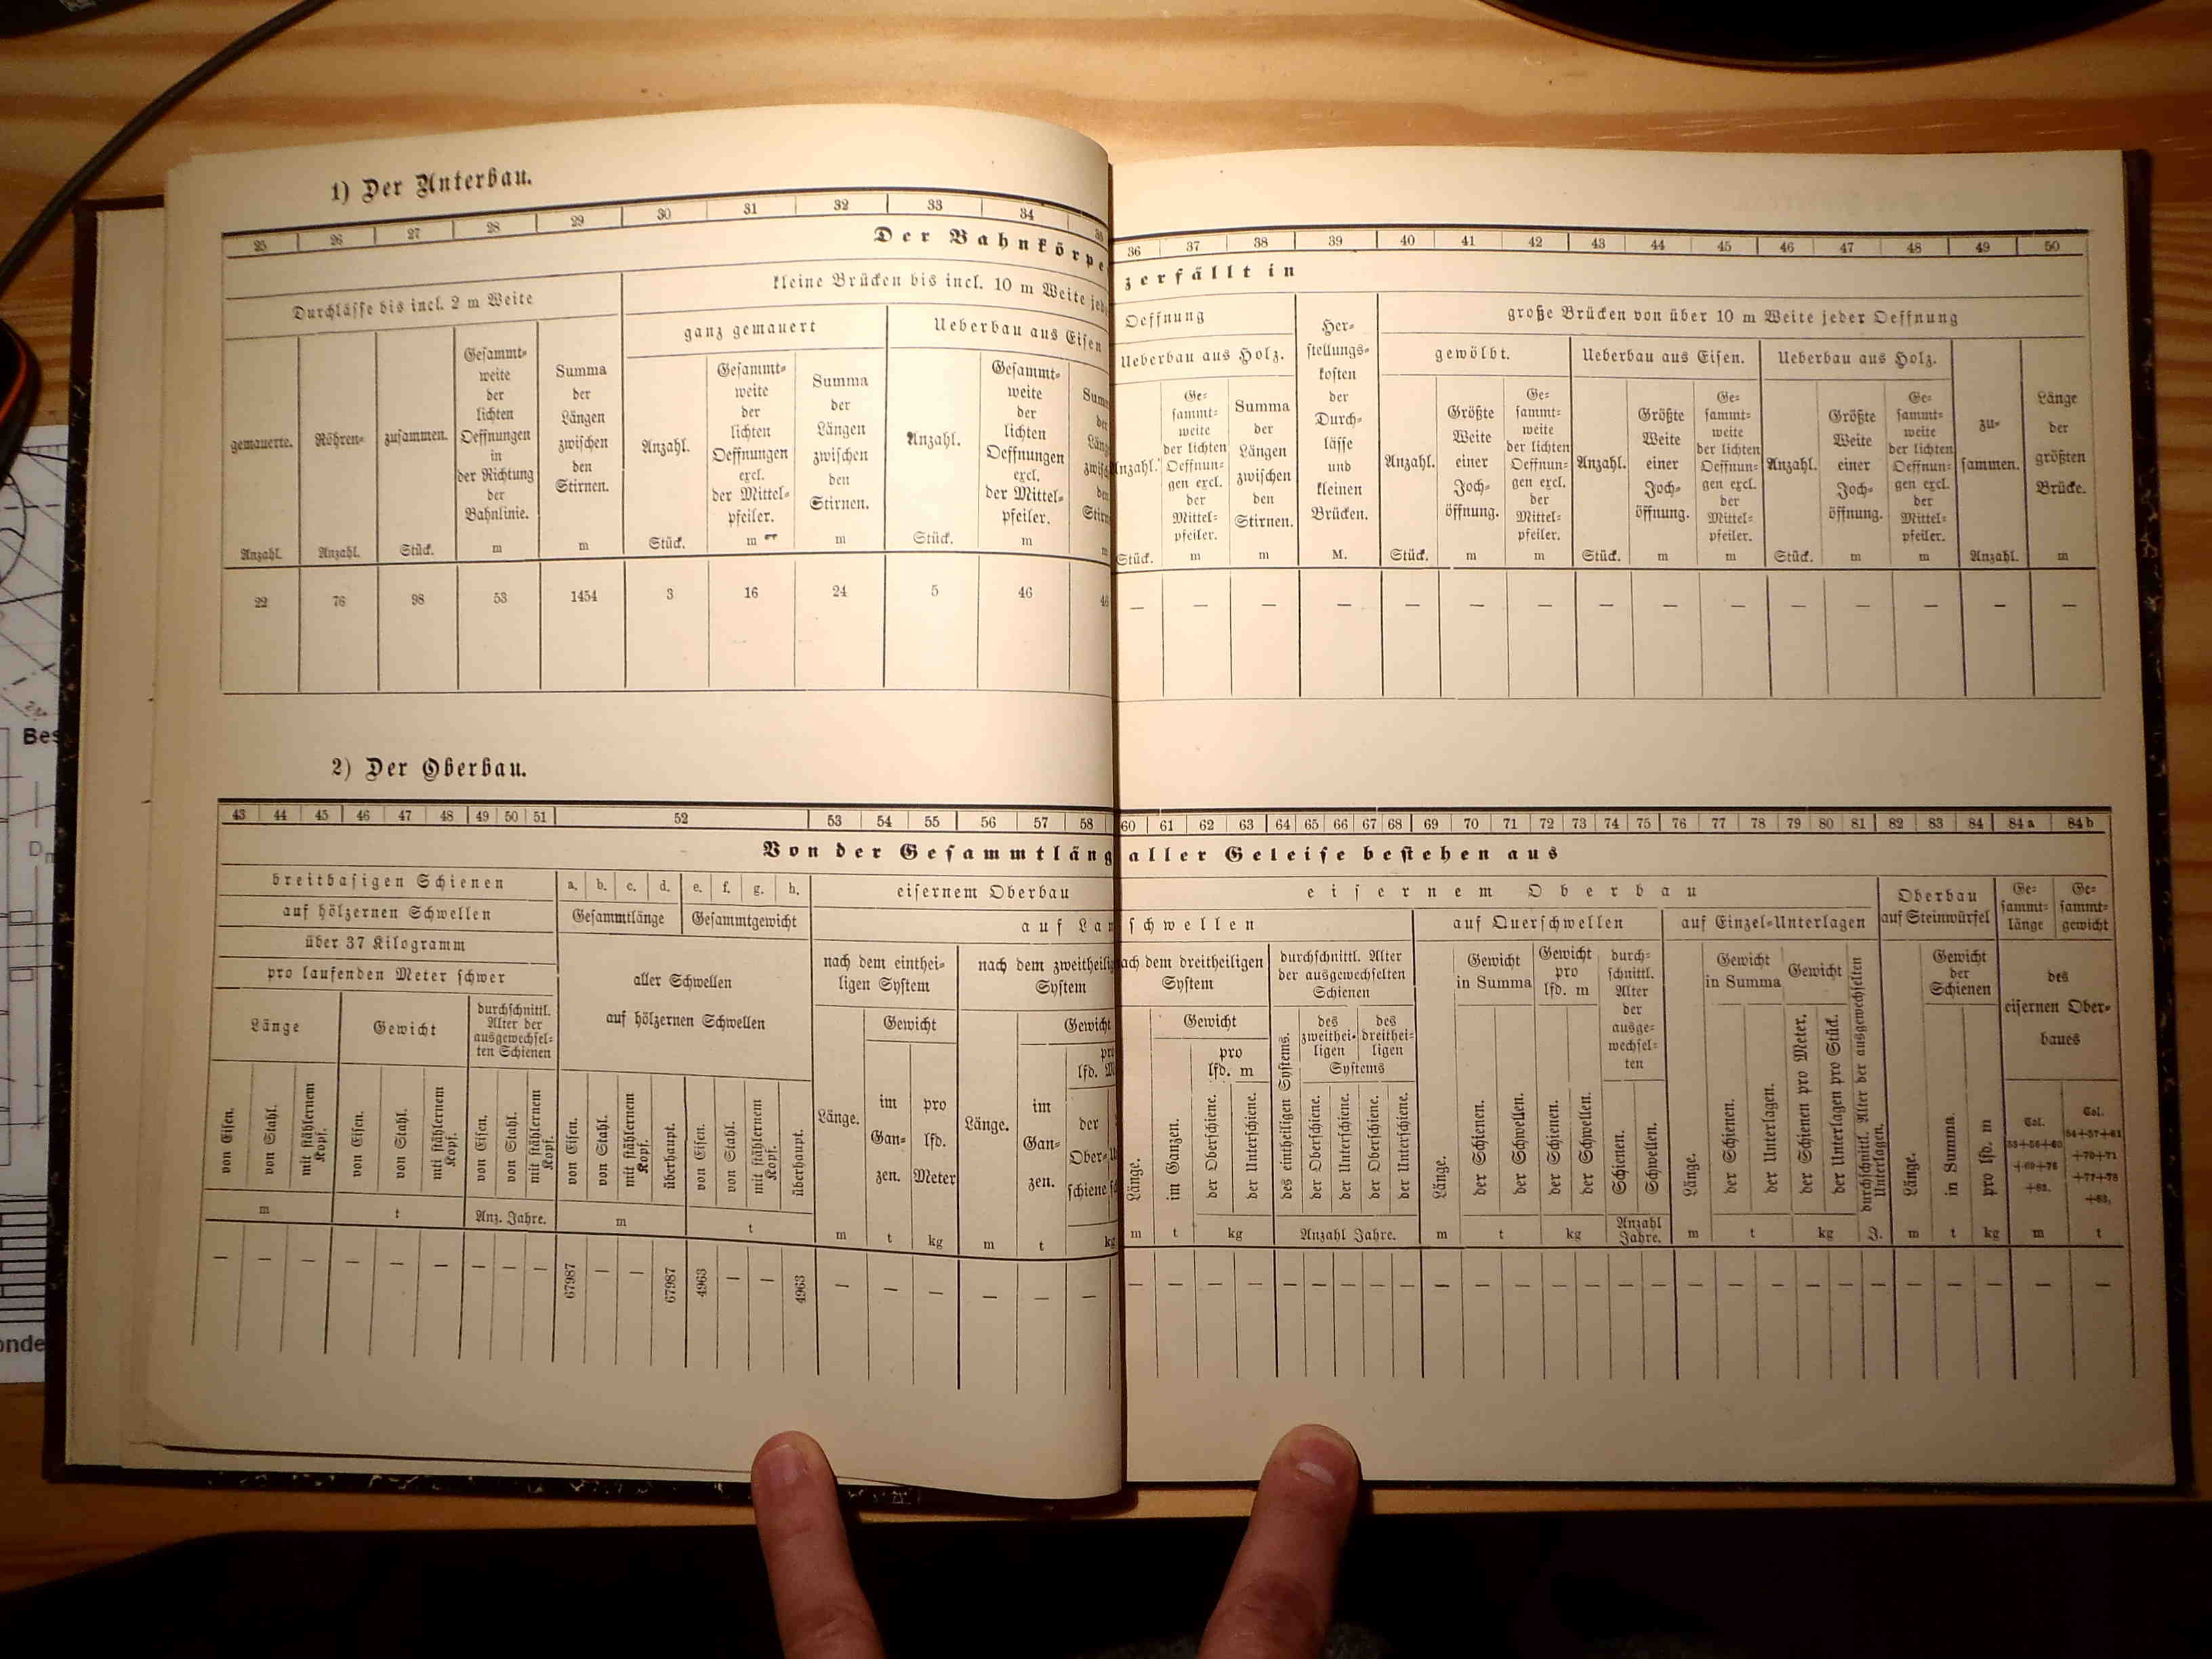 1) Der Unterbau.
25 26 27 28 29 30 31 32 33 34 35
Der Bahnkörpe
Durchlässe bis incl. 2 m Weite
kleine Brücken bis incl. 10 m Weite jed
ganz gemauert
Ueberbau aus Eisen
gemauerte.
Anzahl.
Röhren-
Anzahl.
zusammen.
Stück.
Gesammt-
weite
der
lichten
Oeffnungen
in
der Richtung
der
Bahnlinie.
m
Summa
der
Längen
zwischen
den
Stirnen.
m
Anzahl.
Stück.
Gesammt-
weite
der
lichten
Oeffnungen
excl.
der Mittel-
pfeiler.
m
Summa
der
Längen
zwischen
den
Stirnen.
m
Anzahl.
Stück.
Gesammt-
weite
der
lichten
Oeffnungen
excl.
der Mittel-
pfeiler.
m
22 76 98 53 1454 3 16 24 5 46
36 37 38 39 40 41 42 43 44 45 46 47 48 49 50
zerfällt in
Oeffnung
Ueberbau aus Holz.
nzahl.
Stück.
Ge-
sammt-
weite
der lichten
Oeffnun-
gen excl.
der
Mittel-
pfeiler.
m
Summa
der
Längen
zwischen
den
Stirnen.
m
Her-
stellungs-
kosten
der
Durch-
lässe
und
kleinen
Brücken.
M.
große Brücken von über 10 m Weite jeder Oeffnung
gewölbt.
Anzahl.
Stück.
Größte
Weite
einer
Joch-
öffnung.
m
Ge-
sammt-
weite
der lichten
Oeffnun-
gen excl.
der
Mittel-
pfeiler.
m
Ueberbau aus Eisen.
Anzahl.
Stück.
Größte
Weite
einer
Joch-
öffnung.
m
Ge-
sammt-
weite
der lichten
Oeffnun-
gen excl.
der
Mittel-
pfeiler.
m
Ueberbau aus Holz.
Anzahl.
Stück.
Größte
Weite
einer
Joch-
öffnung.
m
Ge-
sammt-
weite
der lichten
Oeffnun-
gen excl.
der
Mittel-
pfeiler.
m
zu-
sammen.
Anzahl.
Länge
der
größten
Brücke.
m
— — — — — — — — — — — — — — —
2) Der Oberbau.
43 44 45 46 47 48 49 50 51 52 53 54 55 56 57 58
Von der Gesammtläng
breitbasigen Schienen
auf hölzernen Schwellen
über 37 Kilogramm
pro laufenden Meter schwer
Länge
von Eisen.
von Stahl.
mit stählernem
Kopf.
m
Gewicht
von Eisen.
von Stahl.
mti stählernem
Kopf.
t
durchschnittl.
Alter der
ausgewechsel-
ten Schienen
von Eisen.
von Stahl.
mit stählernem
Kopf.
Anz. Jahre.
a. b. c. d. e. f. g. h.
Gesammtlänge
Gesammtgewicht
aller Schwellen
auf hölzernen Schwellen
von Eisen.
von Stahl.
mit stählernem
Kopf.
überhaupt.
m
von Eisen.
von Stahl.
mit stählernem
Kopf.
überhaupt.
t
eisernem Oberbau
auf Lan
nach dem einthei-
ligen System
Länge.
m
Gewicht
im
Gan-
zen.
t
pro
lfd.
Meter
kg
nach dem zweitheilig
System
Länge.
m
Gewicht
im
Gan-
zen.
t
pro
lfd. M
der
Ober-
schiene
kg
— — — — — — — — — 67987 — — 67987 4963 — — 4963 — — — — — —
60 61 62 63 64 65 66 67 68 69 70 71 72 73 74 75 76 77 78 79 80 81 82 83 84 84a 84b
aller Geleise bestehen aus
eisernem Oberbau
schwellen
ach dem dreitheiligen
System
Länge.
m
Gewicht
im Ganzen.
t
pro
lfd. m
der Oberschiene.
der Unterschiene.
kg
durchschnittl. Alter
der ausgewechselten
Schienen
des eintheiligen Systems.
des
zweithei-
ligen
des
dreithei-
ligen
Systems
der Oberschiene.
der Unterschiene.
der Oberschiene.
der Unterschiene.
Anzahl Jahre.
auf Querschwellen
Länge.
m
Gewicht
in Summa
der Schienen.
der Schwellen.
t
Gewicht
pro
lfd. m
der Schienen.
der Schwellen.
kg
durch-
schnittl.
Alter
der
ausge-
wechsel-
ten
Schienen.
Schwellen.
Anzahl
Jahre.
auf Einzel-Unterlagen
Länge.
m
Gewicht
in Summa
der Schienen.
der Unterlagen.
t
Gewicht
der Schienen pro Meter.
der Unterlagen pro Stück.
kg
durchschnittl. Alter der ausgewechselten
Unterlagen.
J.
Oberbau
auf Steinwürfel
Länge.
m
Gewicht
der
Schienen
in Summa.
t
pro lfd. m
kg
Ge-
sammt-
länge
Ge-
sammt-
gewicht
des
eisernen Ober-
baues
Col.
53+56+60
+69+76
+82.
m
Col.
54+57+61
+70+71
+77+78
+83.
t
— — — — — — — — — — — — — — — — — — — — — — — — — — —
Bes
onde